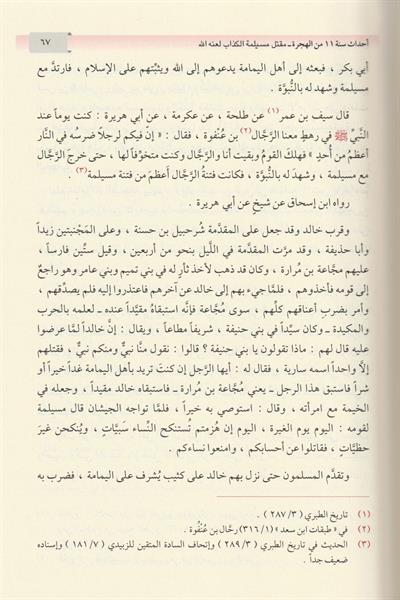 أحداث سنة ١١ من الهجرة ـ مقتل مسيلمة الكذاب لعنه الله
٦٧
أبي بكر ، فبعثه إلى أهل اليمامة يدعوهم إلى الله ويثبِّتهم على الإسلام ، فارتدَّ مع
مسيلمة وشهد له بالنُّبوَّة .
قال سيف بن عمر(١) عن طلحة ، عن عكرمة ، عن أبي هريرة : كنت يوماً عند
النَّبيِّ ﷺ في رهطٍ معنا الرَّجَّال(٢) بن عُنْفوة ، فقال : « إن فيكم لرجلاً ضرسُه في النَّار
أعظمُ من أُحدٍ » فهلكَ القومُ وبقيت أنا والرَّجَّال وكنت متخوِّفاً لها ، حتى خرجَ الرَّجَّال
مع مسيلمة ، وشهدَ له بالنُّبوَّة ، فكانت فتنةُ الرَّجَّال أعظمَ من فتنة مسيلمة(٣) .
رواه ابن إسحاق عن شيخٍ عن أبي هريرة .
وقرب خالد وقد جعل على المقدِّمة شُرحبيل بن حسنة ، وعلى المُجَنِبتين زيداً
وأبا حذيفة ، وقد مرَّت المقدِّمة في اللَّيل بنحو من أربعين ، وقيل ستِّين فارساً ،
عليهم مجَّاعة بن مُرارة ، وكان قد ذهب لأخذ ثأرٍ له في بني تميم وبني عامر وهو راجعٌ
إلى قومه فأخذوهم ، فلمَّا جيء بهم إلى خالد عن آخرهم فاعتذروا إليه فلم يصدِّقهم ،
وأمر بضربِ أعناقهم كلِّهم ، سوى مُجَّاعة فإنَّه استبقاهُ مقيَّداً عنده ـ لعلمه بالحرب
والمكيدة ـ وكان سيِّداً في بني حنيفة ، شريفاً مطاعاً ، ويقال : إنَّ خالداً لمَّا عرضوا
عليه قال لهم : ماذا تقولون يا بني حنيفة ؟ قالوا : نقول منَّا نبيٌّ ومنكم نبيٌّ ، فقتلهم
إلَّا واحداً اسمه سارية ، فقال له : أيها الرَّجل إن كنتَ تريد بأهل اليمامة غداً خيراً أو
شراً فاستبق هذا الرجل ـ يعني مُجَّاعة بن مُرارة ـ فاستبقاه خالد مقيداً ، وجعله في
الخيمة مع امرأته ، وقال : استوصي به خيراً ، فلمَّا تواجه الجيشان قال مسيلمة
لقومه : اليوم يوم الغيرة ، اليوم إن هُزمتم تُستنكح النِّساء سَبيَّاتٍ ، ويُنكحن غيرَ
حظيَّاتٍ ، فقاتلوا عن أحسابكم ، وامنعوا نساءكم .
وتقدَّم المسلمون حتى نزل بهم خالد على كثيب يُشرف على اليمامة ، فضرب به
(١) تاريخ الطبري (٣/ ٢٨٧) .
(٢) في « طبقات ابن سعد » (١/ ٣١٦) رحَّال بن عُنْفُوة .
(٣) الحديث في تاريخ الطبري (٣/ ٢٨٩) وإتحاف السادة المتقين للزبيدي (٧/ ١٨١) وإسناده
ضعيف جداً .